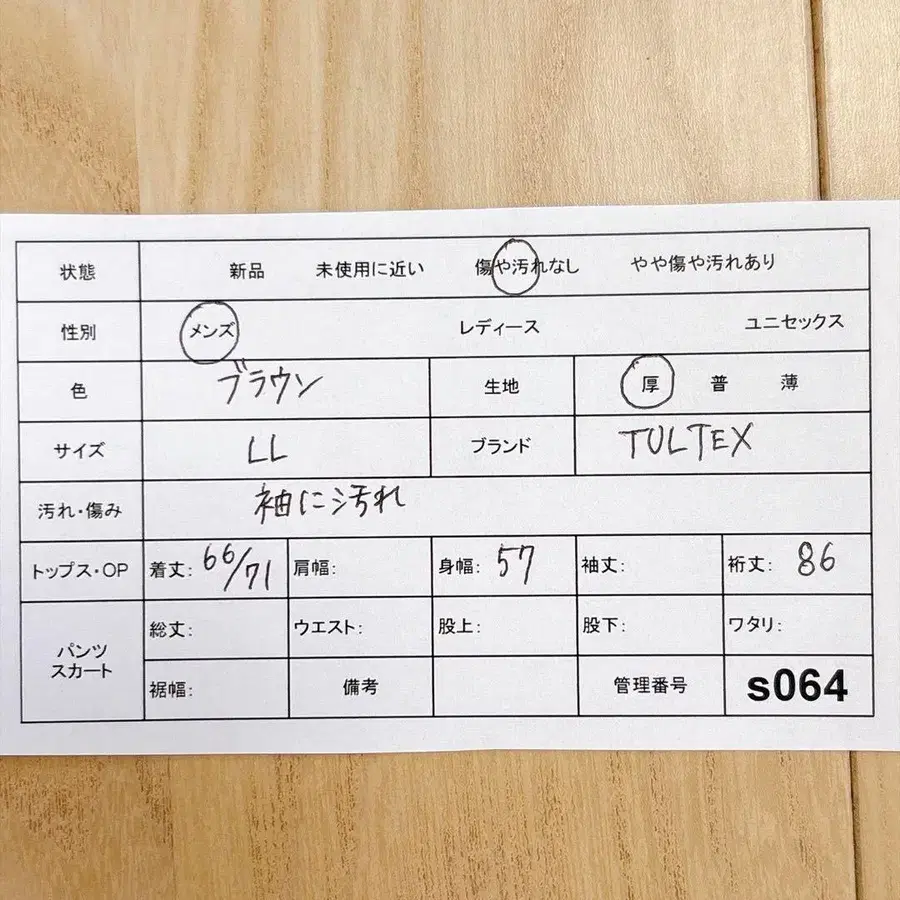 状態 新品 未使用に近い 傷や汚れなし やや傷や汚れあり
性別 メンズ レディース ユニセックス
色 ブラウン 生地 厚 普 薄
サイズ LL ブランド TULTEX
汚れ・傷み 袖に汚れ
トップス・OP 着丈: 66/71 肩幅: 身幅: 57 袖丈: 裄丈: 86
パンツ
スカート
総丈: ウエスト: 股上: 股下: ワタリ:
裾幅: 備考 管理番号 s064